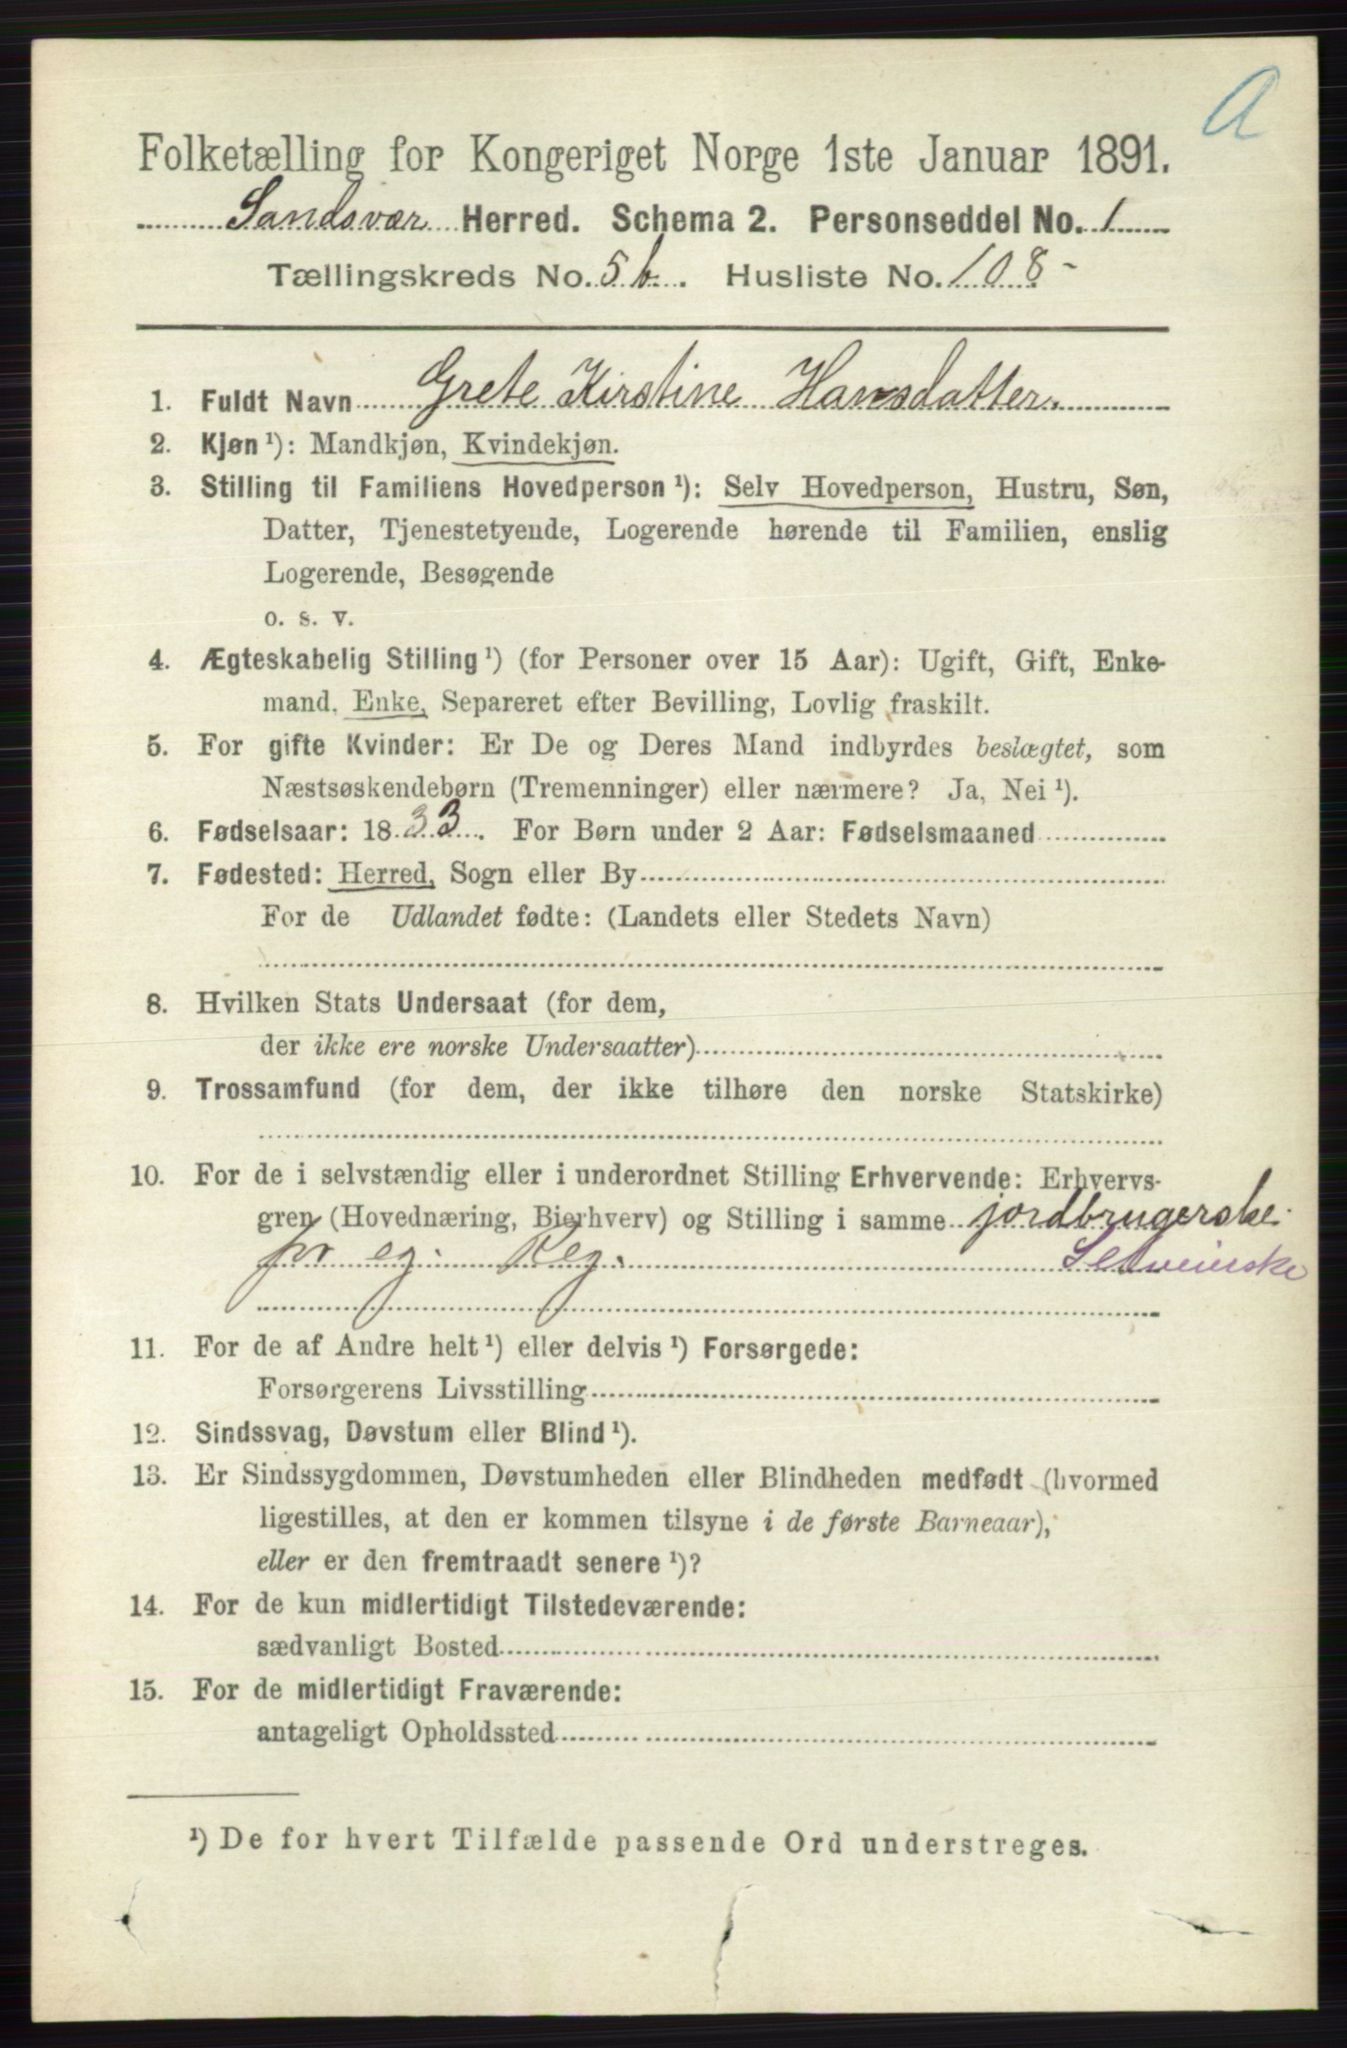 A
Folketælling for Kongeriget Norge 1ste Januar 1891.
Sandsvær Herred. Schema 2. Personseddel No. 1
Tællingskreds No. 5 b. Husliste No. 108-
1. Fuldt Navn Grete Kirstine Hansdatter.
2. Kjøn ¹): Mandkjøn, Kvindekjøn.
3. Stilling til Familiens Hovedperson ¹): Selv Hovedperson, Hustru, Søn,
Datter, Tjenestetyende, Logerende hørende til Familien, enslig
Logerende, Besøgende
o. s. v.
4. Ægteskabelig Stilling ¹) (for Personer over 15 Aar): Ugift, Gift, Enke-
mand, Enke, Separeret efter Bevilling, Lovlig fraskilt.
5. For gifte Kvinder: Er De og Deres Mand indbyrdes beslægtet, som
Næstsøskendebørn (Tremenninger) eller nærmere? Ja, Nei ¹).
6. Fødselsaar: 1833. For Børn under 2 Aar: Fødselsmaaned
7. Fødested: Herred, Sogn eller By
For de Udlandet fødte: (Landets eller Stedets Navn)
8. Hvilken Stats Undersaat (for dem,
der ikke ere norske Undersaatter)
9. Trossamfund (for dem, der ikke tilhøre den norske Statskirke)
10. For de i selvstændig eller i underordnet Stilling Erhvervende: Erhvervs-
gren (Hovednæring, Bierhverv) og Stilling i samme jordbrugerske
for eg. Reg. Selveierske
11. For de af Andre helt ¹) eller delvis ¹) Forsørgede:
Forsørgerens Livsstilling
12. Sindssvag, Døvstum eller Blind ¹).
13. Er Sindssygdommen, Døvstumheden eller Blindheden medfødt (hvormed
ligestilles, at den er kommen tilsyne i de første Barneaar),
eller er den fremtraadt senere ¹)?
14. For de kun midlertidigt Tilstedeværende:
sædvanligt Bosted
15. For de midlertidigt Fraværende:
antageligt Opholdssted
¹) De for hvert Tilfælde passende Ord understreges.